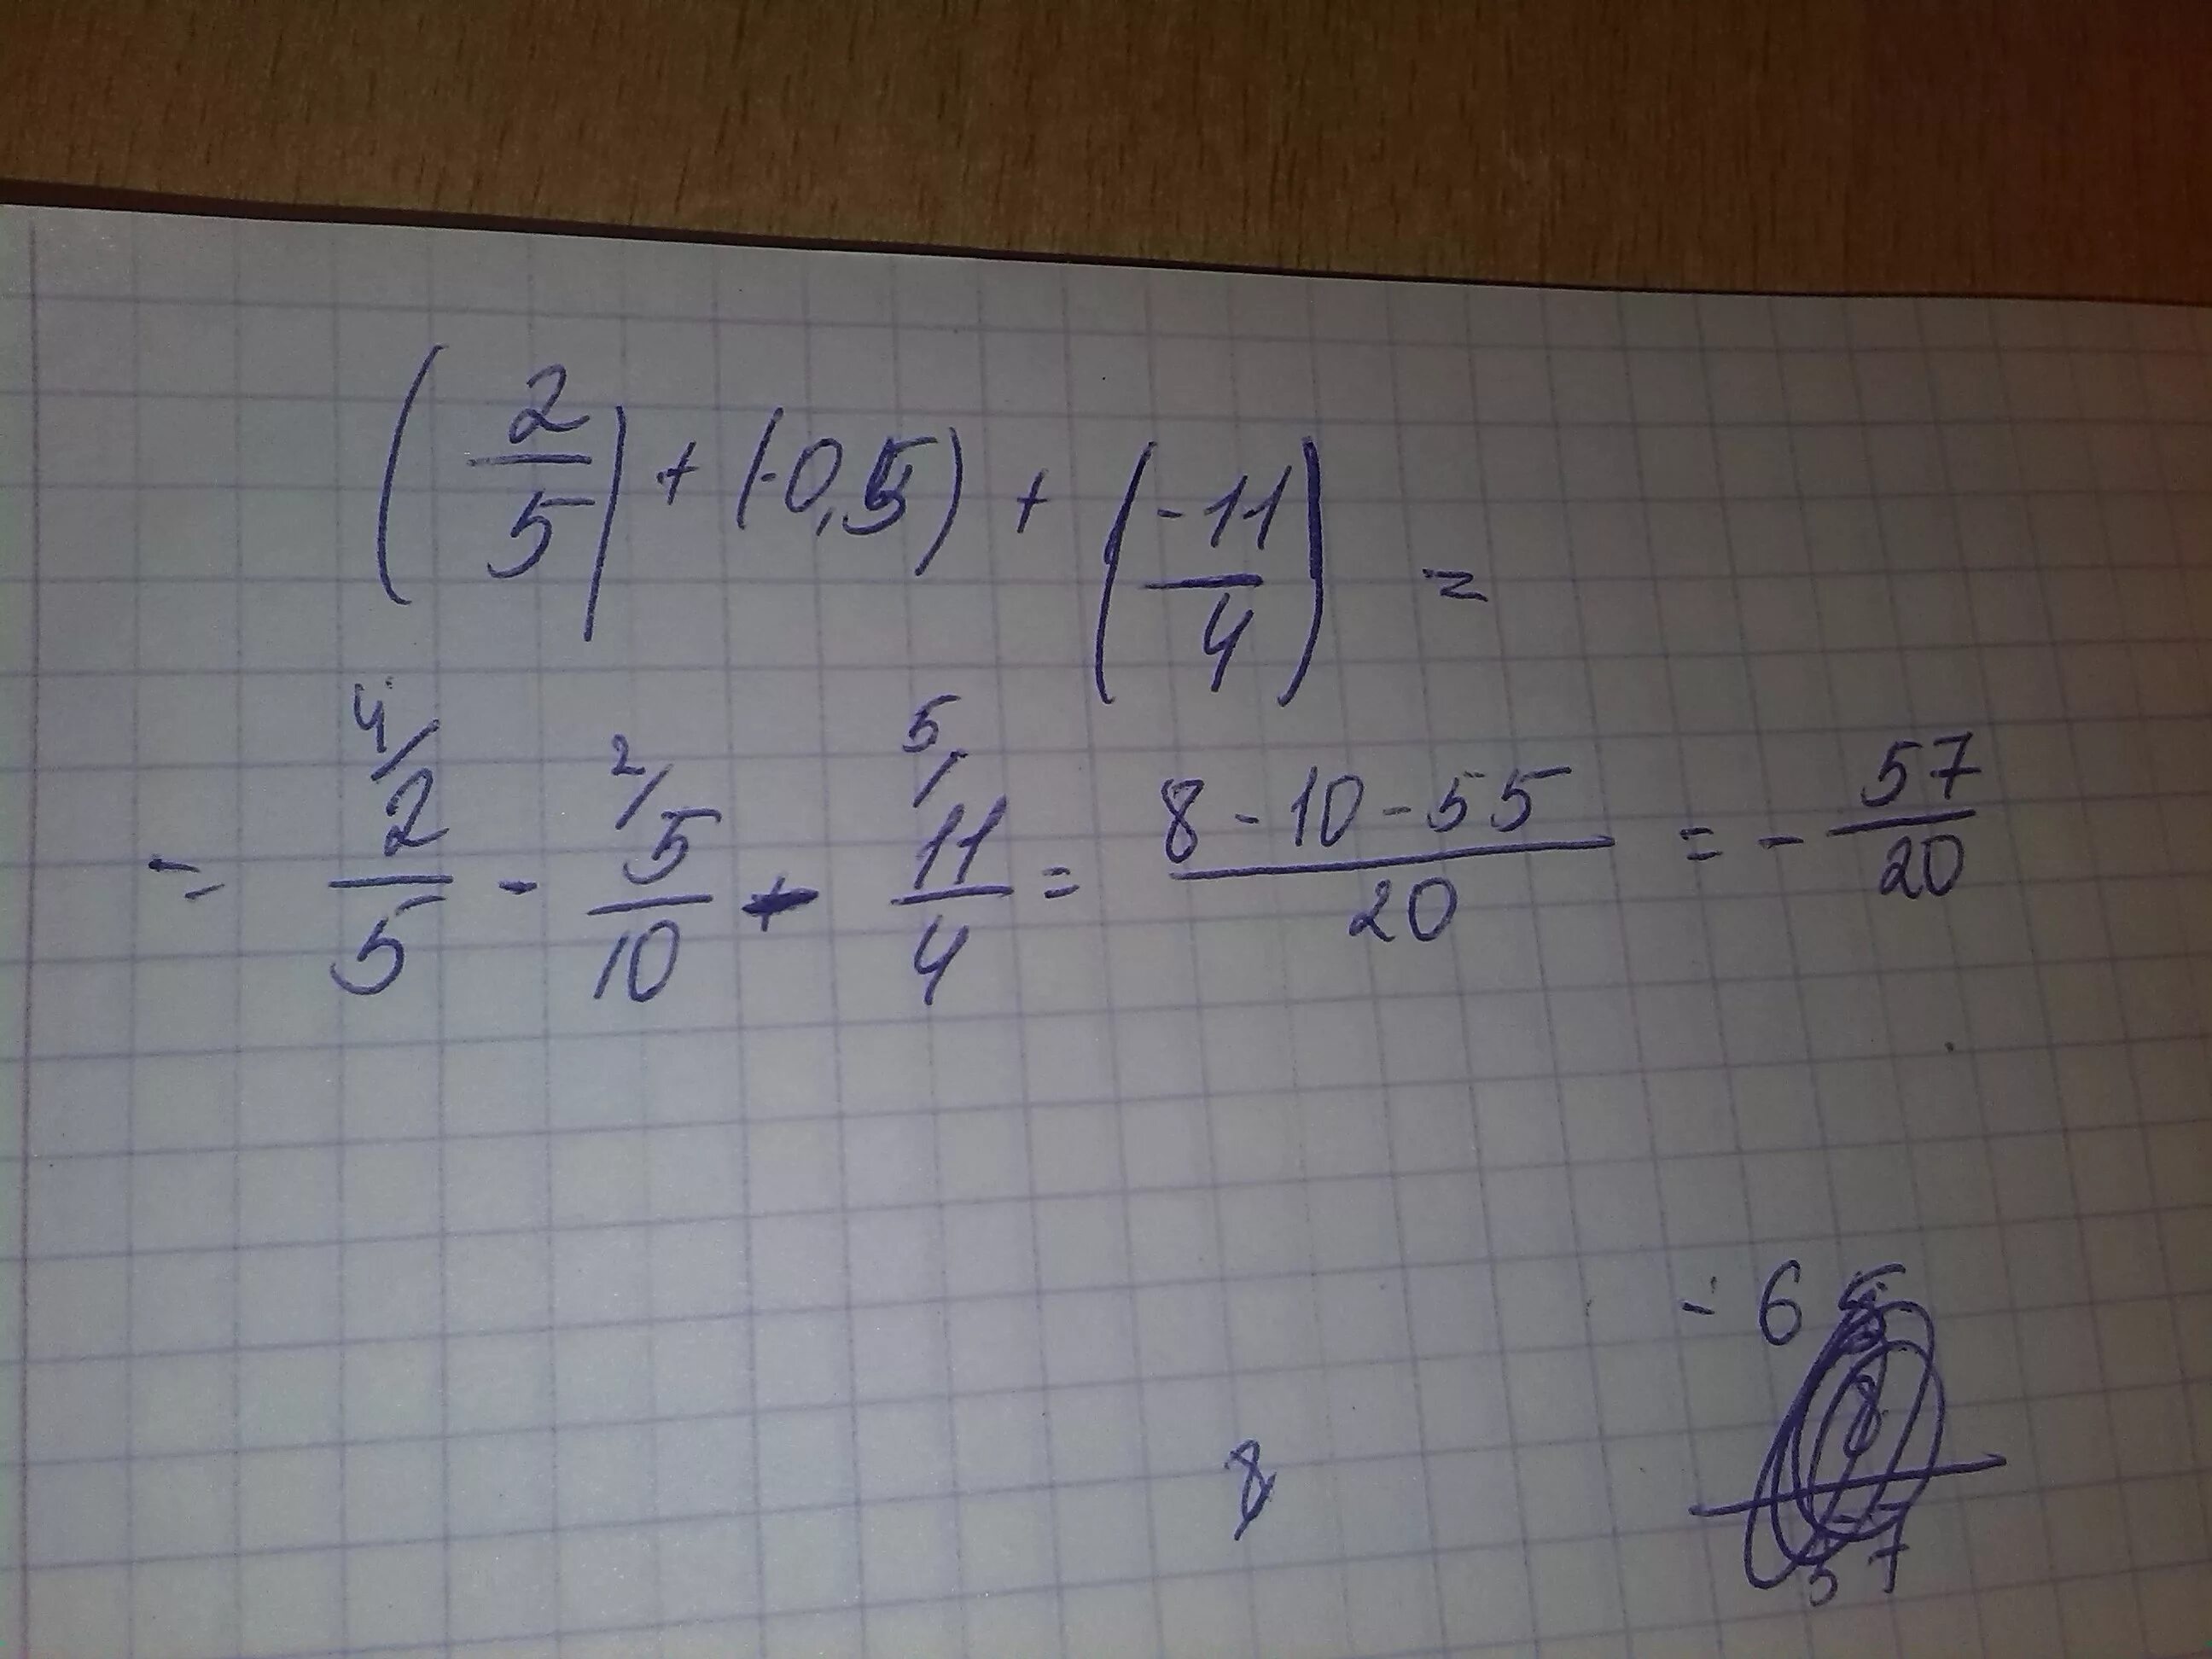 (2/5) + (-0,5) + (-11/4) =
= 4/ 2/5 - 2/ 5/10 - 5/ 11/4 = (8 - 10 - 55)/20 = - 57/20
- 65
8
8
57